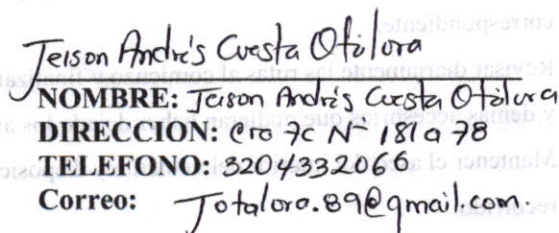 Jeison Andrés Cuesta Otálora
NOMBRE: Jeison Andrés Cuesta Otálora
DIRECCION: Cra 7c Nº 181a 78
TELEFONO: 3204332066
Correo: Jotalora.89@gmail.com.